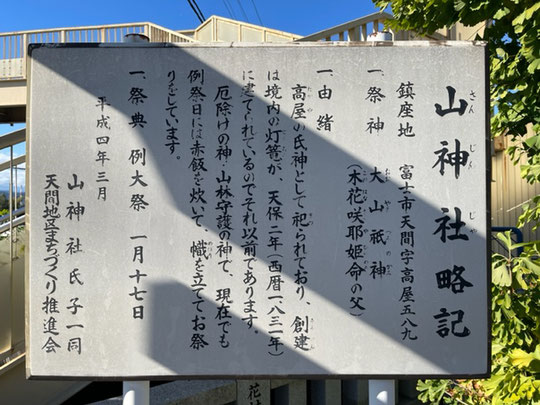 山神社略記
さんじんじゃ
鎮座地　富士市天間字高屋五八九
一、祭神　大山祇神
（木花咲耶姫命の父）
一、由緒
高屋の氏神として祀られており、創建
は境内の灯篭が、天保二年（西暦一八三一年）
に建てられているのでそれ以前であります。
厄除けの神・山林守護の神で、現在でも
例祭日には赤飯を炊いて、幟を立ててお祭
りをしています。
一、祭典　例大祭　一月十七日
平成四年三月
山神社氏子一同
天間地区まちづくり推進会